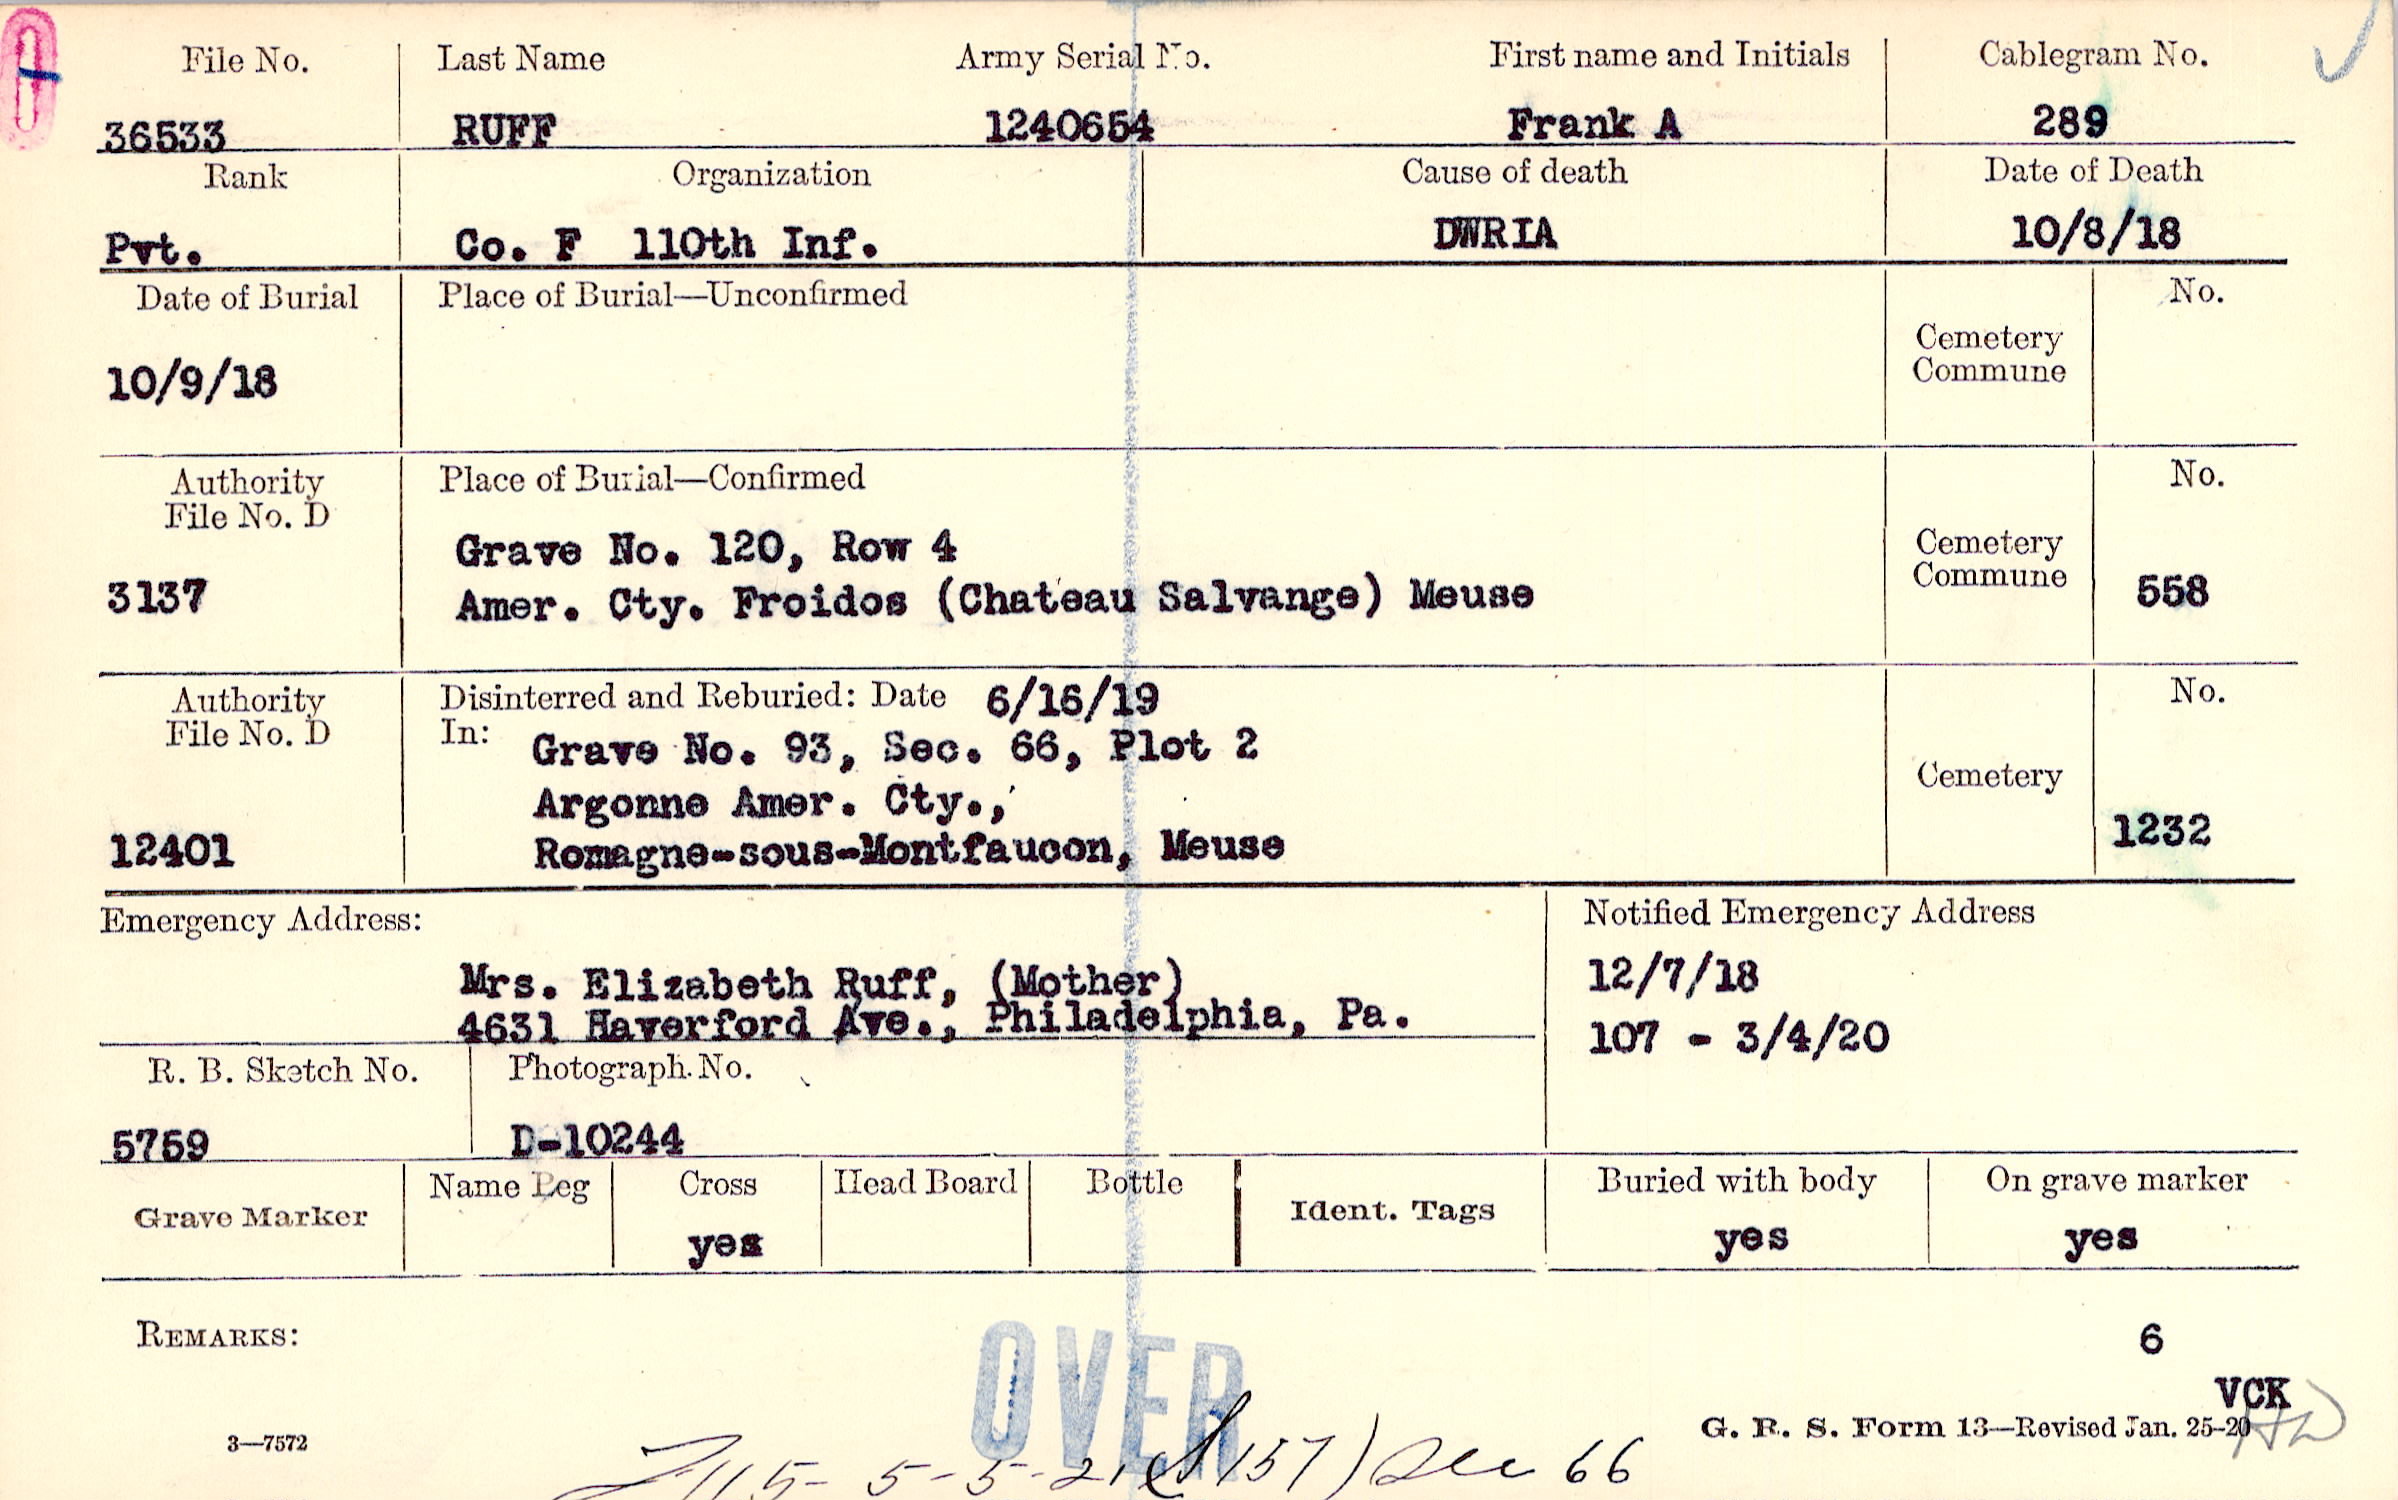 File No. Last Name Army Serial No. First name and Initials Cablegram No.
36533 RUFF 1240654 Frank A 289
Rank Organization Cause of death Date of Death
Pvt. Co. F 110th Inf. DWRIA 10/8/18
Date of Burial Place of Burial—Unconfirmed No.
Cemetery
Commune
10/9/18
Authority Place of Burial—Confirmed No.
File No. D
Grave No. 120, Row 4 Cemetery
Commune
3137 Amer. Cty. Froidos (Chateau Salvange) Meuse 558
Authority Disinterred and Reburied: Date 6/16/19 No.
File No. D In: Grave No. 93, Sec. 66, Plot 2
Argonne Amer. Cty., Cemetery
12401 Romagne-sous-Montfaucon, Meuse 1232
Emergency Address: Notified Emergency Address
Mrs. Elizabeth Ruff, (Mother) 12/7/18
4631 Haverford Ave., Philadelphia, Pa. 107 - 3/4/20
R. B. Sketch No. Photograph No.
5759 D-10244
Grave Marker Name Peg Cross Head Board Bottle Ident. Tags Buried with body On grave marker
yes yes yes
REMARKS: 6
OVER
VCK
3—7572 G. R. S. Form 13—Revised Jan. 25-20
5-5-21 (S157) Sec 66